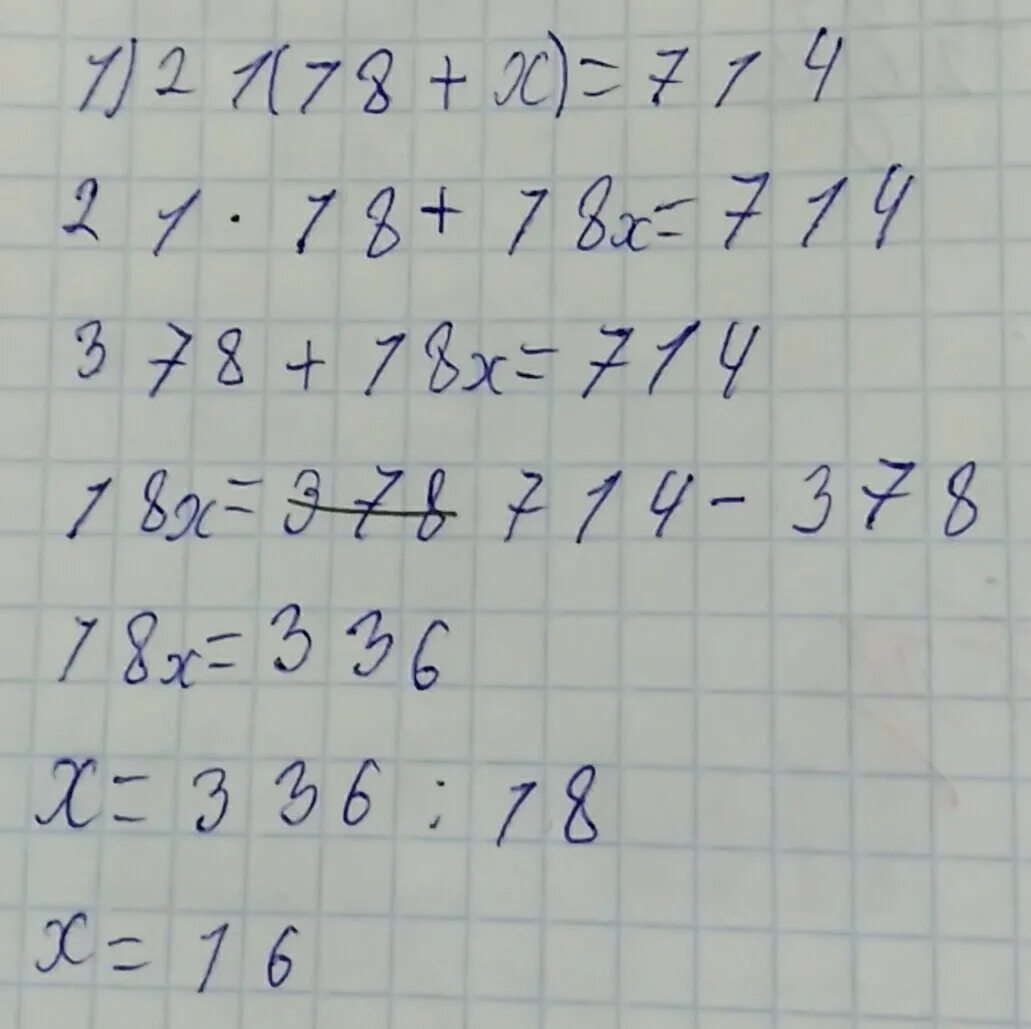 1) 21(18 + x) = 714
21 · 18 + 18x = 714
378 + 18x = 714
18x = ~~378~~ 714 - 378
18x = 336
x = 336 : 18
x = 16